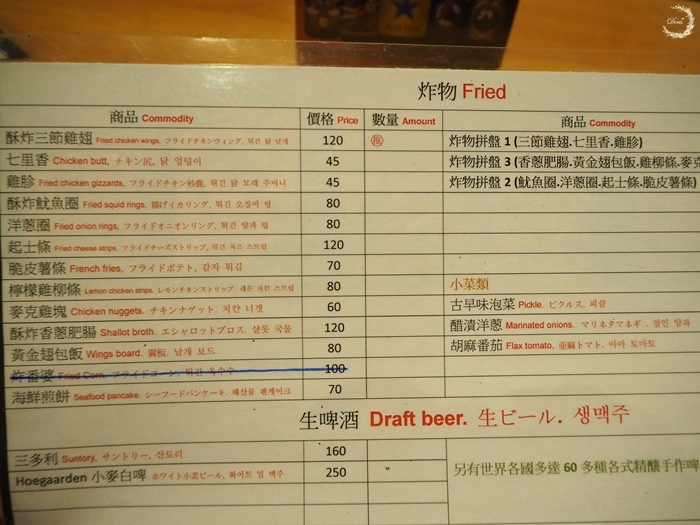 Doris
炸物 Fried
商品 Commodity 價格 Price 數量 Amount 商品 Commodity
酥炸三節雞翅 Fried chicken wings, フライドチキンウィング, 튀긴 닭 날개 120 推 炸物拼盤 1 (三節雞翅.七里香.雞胗)
七里香 Chicken butt, チキン尻, 닭 엉덩이 45 炸物拼盤 3 (香蔥肥腸.黃金翅包飯.雞柳條.麥克
雞胗 Fried chicken gizzards, フライドチキン砂嚢, 튀긴 닭 모래 주머니 45 炸物拼盤 2 (魷魚圈.洋蔥圈.起士條.脆皮薯條)
酥炸魷魚圈 Fried squid rings, 揚げイカリング, 튀긴 오징어 링 80
洋蔥圈 Fried onion rings, フライドオニオンリング, 튀긴 양파 링 80
起士條 Fried cheese strips, フライドチーズストリップ, 튀긴 치즈 스트립 120
脆皮薯條 French fries, フライドポテト, 감자 튀김 70
檸檬雞柳條 Lemon chicken strips. レモンチキンストリップ. 레몬 치킨 스트립 80 小菜類
麥克雞塊 Chicken nuggets. チキンナゲット. 치킨 너겟 60 古早味泡菜 Pickle. ピクルス. 피클
酥炸香蔥肥腸 Shallot broth. エシャロットブロス. 샬롯 국물 120 醋漬洋蔥 Marinated onions. マリネタマネギ. 절인 양파
黃金翅包飯 Wings board. 翼板. 날개 보드 80 胡麻番茄 Flax tomato. 亜麻トマト. 아마 토마토
炸番婆 Fried Corn. フライドコーン. 튀긴 옥수수 100
海鮮煎餅 Seafood pancake. シーフードパンケーキ. 해산물 팬케이크 70
生啤酒 Draft beer. 生ビール. 생맥주
三多利 Suntory, サントリー, 산토리 160
Hoegaarden 小麥白啤 ホワイト小麦ビール, 화이트 밀 맥주 250
另有世界各國多達 60 多種各式精釀手作啤